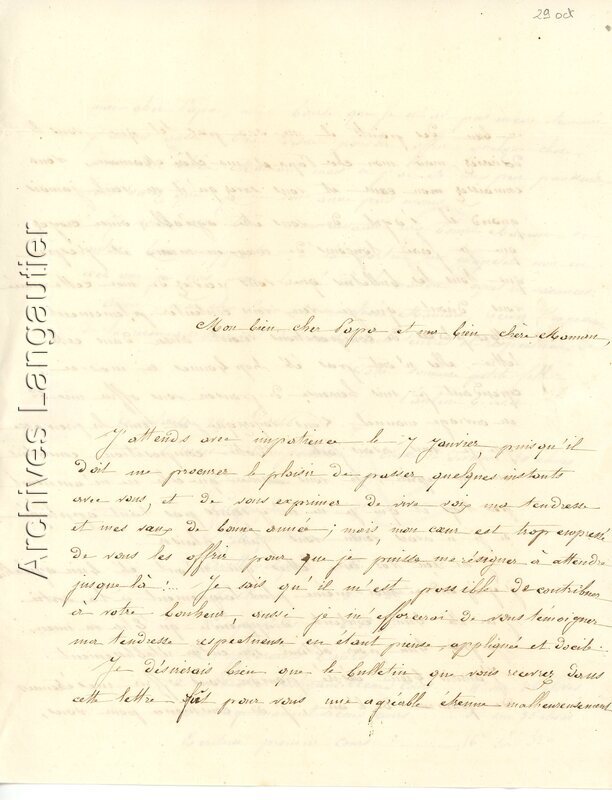 29 oct
Archives Langautier
Mon bien cher Papa et ma bien chère Maman,
J'attends avec impatience le 7 Janvier, puisqu'il
doit me procurer le plaisir de passer quelques instants
avec vous, et de vous exprimer de vive voix ma tendresse
et mes vœux de bonne année ; mais, mon cœur est trop empressé
de vous les offrir pour que je puisse me résigner à attendre
jusque là !... Je sais qu'il m'est possible de contribuer
à votre bonheur, aussi je m'efforcerai de vous témoigner
ma tendresse respectueuse en étant pieuse, appliquée et docile.
Je désirerais bien que le bulletin que vous recevrez dans
cette lettre fût pour vous une agréable étrenne malheureusement